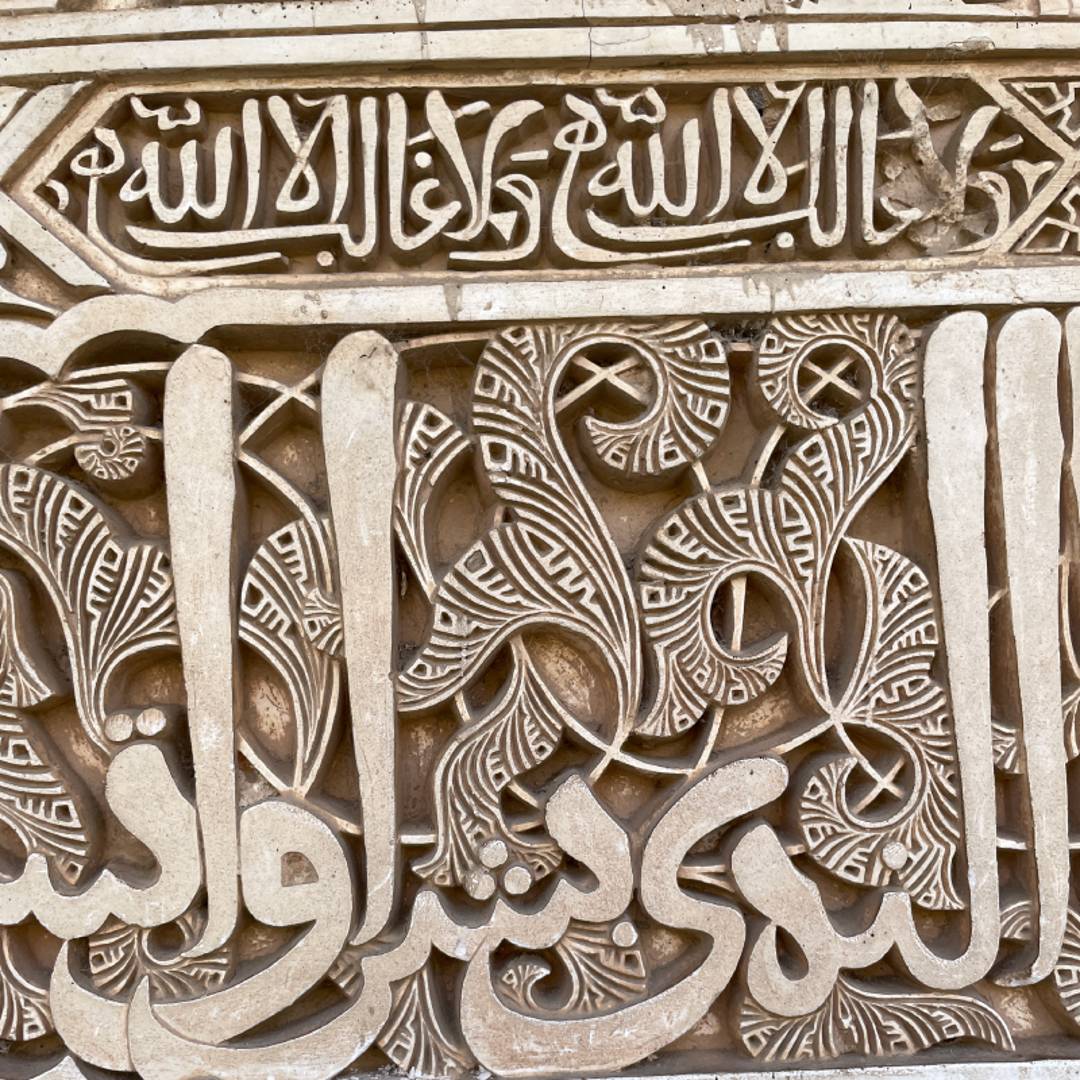 ولا غالب الا الله ولا غالب الا الله
النهى بشرا